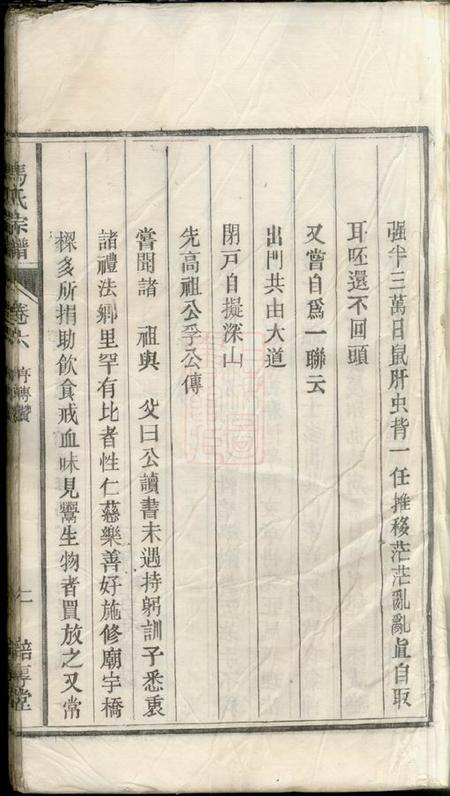 强半三萬日鼠肝虫背一任推移茫茫亂亂眞自取
耳呸還不回頭
又嘗自爲一聯云
出門共由大道
閉戸自擬深山
先高祖公孚公傳
嘗聞諸 祖與 父曰公讀書未遇持躬訓子悉衷
諸禮法鄉里罕有比者性仁慈樂善好施修廟宇橋
樑多所捐助飲食戒血味見鬻生物者買放之又常
馮氏宗譜
卷六